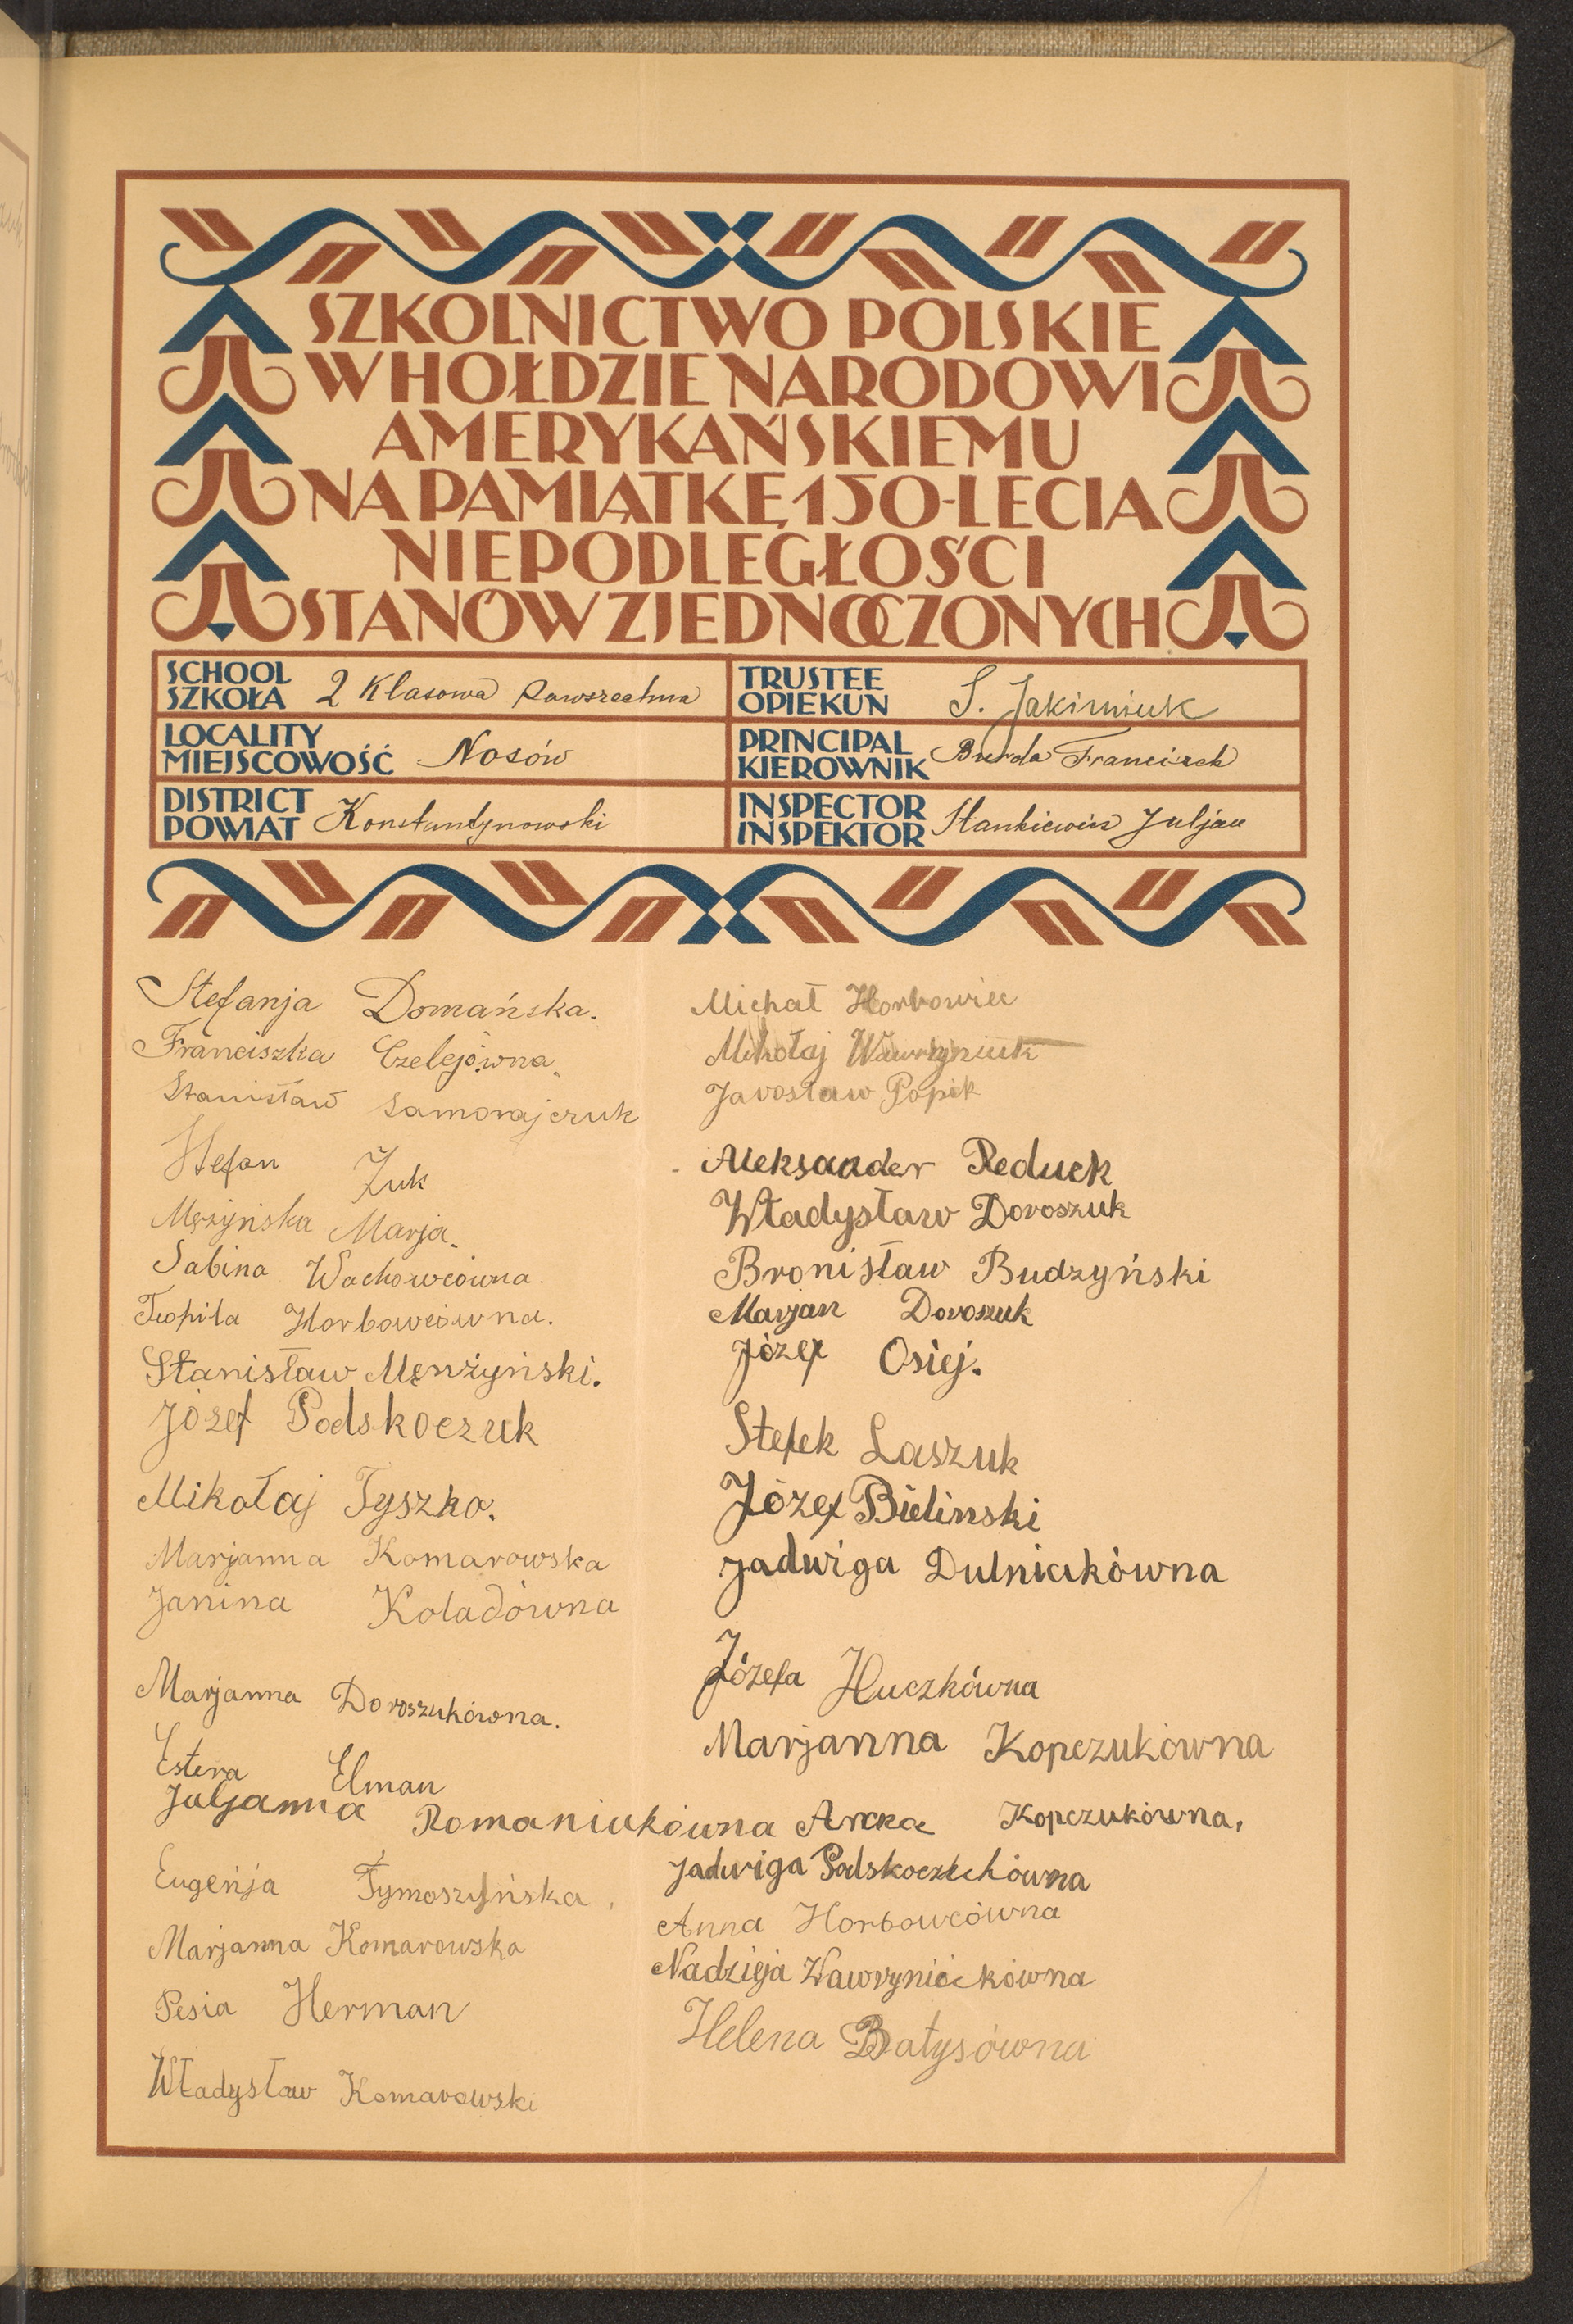 SZKOLNICTWO POLSKIE
W HOŁDZIE NARODOWI
AMERYKAŃSKIEMU
NA PAMIĄTKĘ 150-LECIA
NIEPODLEGŁOŚCI
STANÓW ZJEDNOCZONYCH
SCHOOL
SZKOŁA 2 Klasowa Powszechna
TRUSTEE
OPIEKUN S. Jakimiuk
LOCALITY
MIEJSCOWOŚĆ Nosów
PRINCIPAL
KIEROWNIK Burda Franciszek
DISTRICT
POWIAT Konstantynowski
INSPECTOR
INSPEKTOR Stankiewicz Juljan
Stefanja Domańska.
Franciszka Czelejówna.
Stanisław Samorajczuk
Stefan Żuk
Mężyńska Marja.
Sabina Wachowcówna.
Teofila Horbowcówna.
Stanisław Mężyński.
Józef Podskoczuk
Mikołaj Tyszko.
Marjanna Komarowska
Janina Koladówna
Marjanna Doroszukówna.
Estera Elman
Juljanna Romaniukówna
Eugenja Tymoszyńska,
Marjanna Komarowska
Pesia Herman
Władysław Komarowski
Michał Horbowiec
Mikołaj Wawryniuk
Jarosław Popik
Aleksander Reduck
Władysław Doroszuk
Bronisław Budzyński
Marjan Doroszuk
Józef Osiej.
Stefek Laszuk
Józef Bielinski
Jadwiga Dulniakówna
Józefa Huczkówna
Marjanna Kopczukówna
Anna Kopczukówna,
Jadwiga
Anna Horbowcówna
Nadzieja
Helena Batysówna